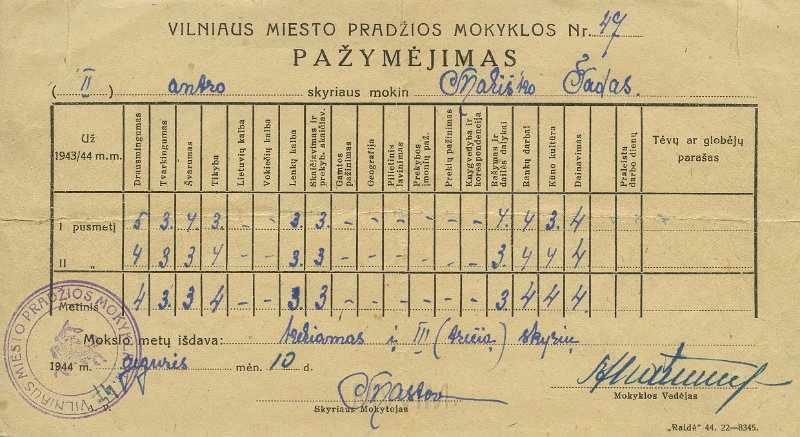 VILNIAUS MIESTO PRADŽIOS MOKYKLOS Nr. 47
PAŽYMĖJIMAS
( II ) antro skyriaus mokin Tadas.
Už 1943/44 m. m. Drausmingumas Tvarkingumas Švarumas Tikyba Lietuvių kalba Vokiečių kalba Lenkų kalba Skaičiavimas ir prekyb. skaičiav. Gamtos pažinimas Geografija Pilietinis lavinimas Prekybos įmonių paž. Prekių pažinimas Knygvedyba ir korespondencija Rašymas ir dailės dalykai Rankų darbai Kūno kultūra Dainavimas Praleista darbo dienų Tėvų ar globėjų parašas
I pusmetį 5 3. 4. 3. - - 3. 3. - - - - - - 4. 4 3. 4
II „ 4 3 3 4 - - 3 3 - - - - - - 3 4 4 4
Metinis 4 3. 3 4 - - 3 3 - - - - - - 3 4 4 4
Mokslo metų išdava: keliamas į III (trečią) skyrių
1944 m. gegužės mėn. 10 d.
A. V.
Skyriaus Mokytojas
Mokyklos Vedėjas
VILNIAUS MIESTO PRADŽIOS MOKYKLA
„Raidė" 44. 22—8345.